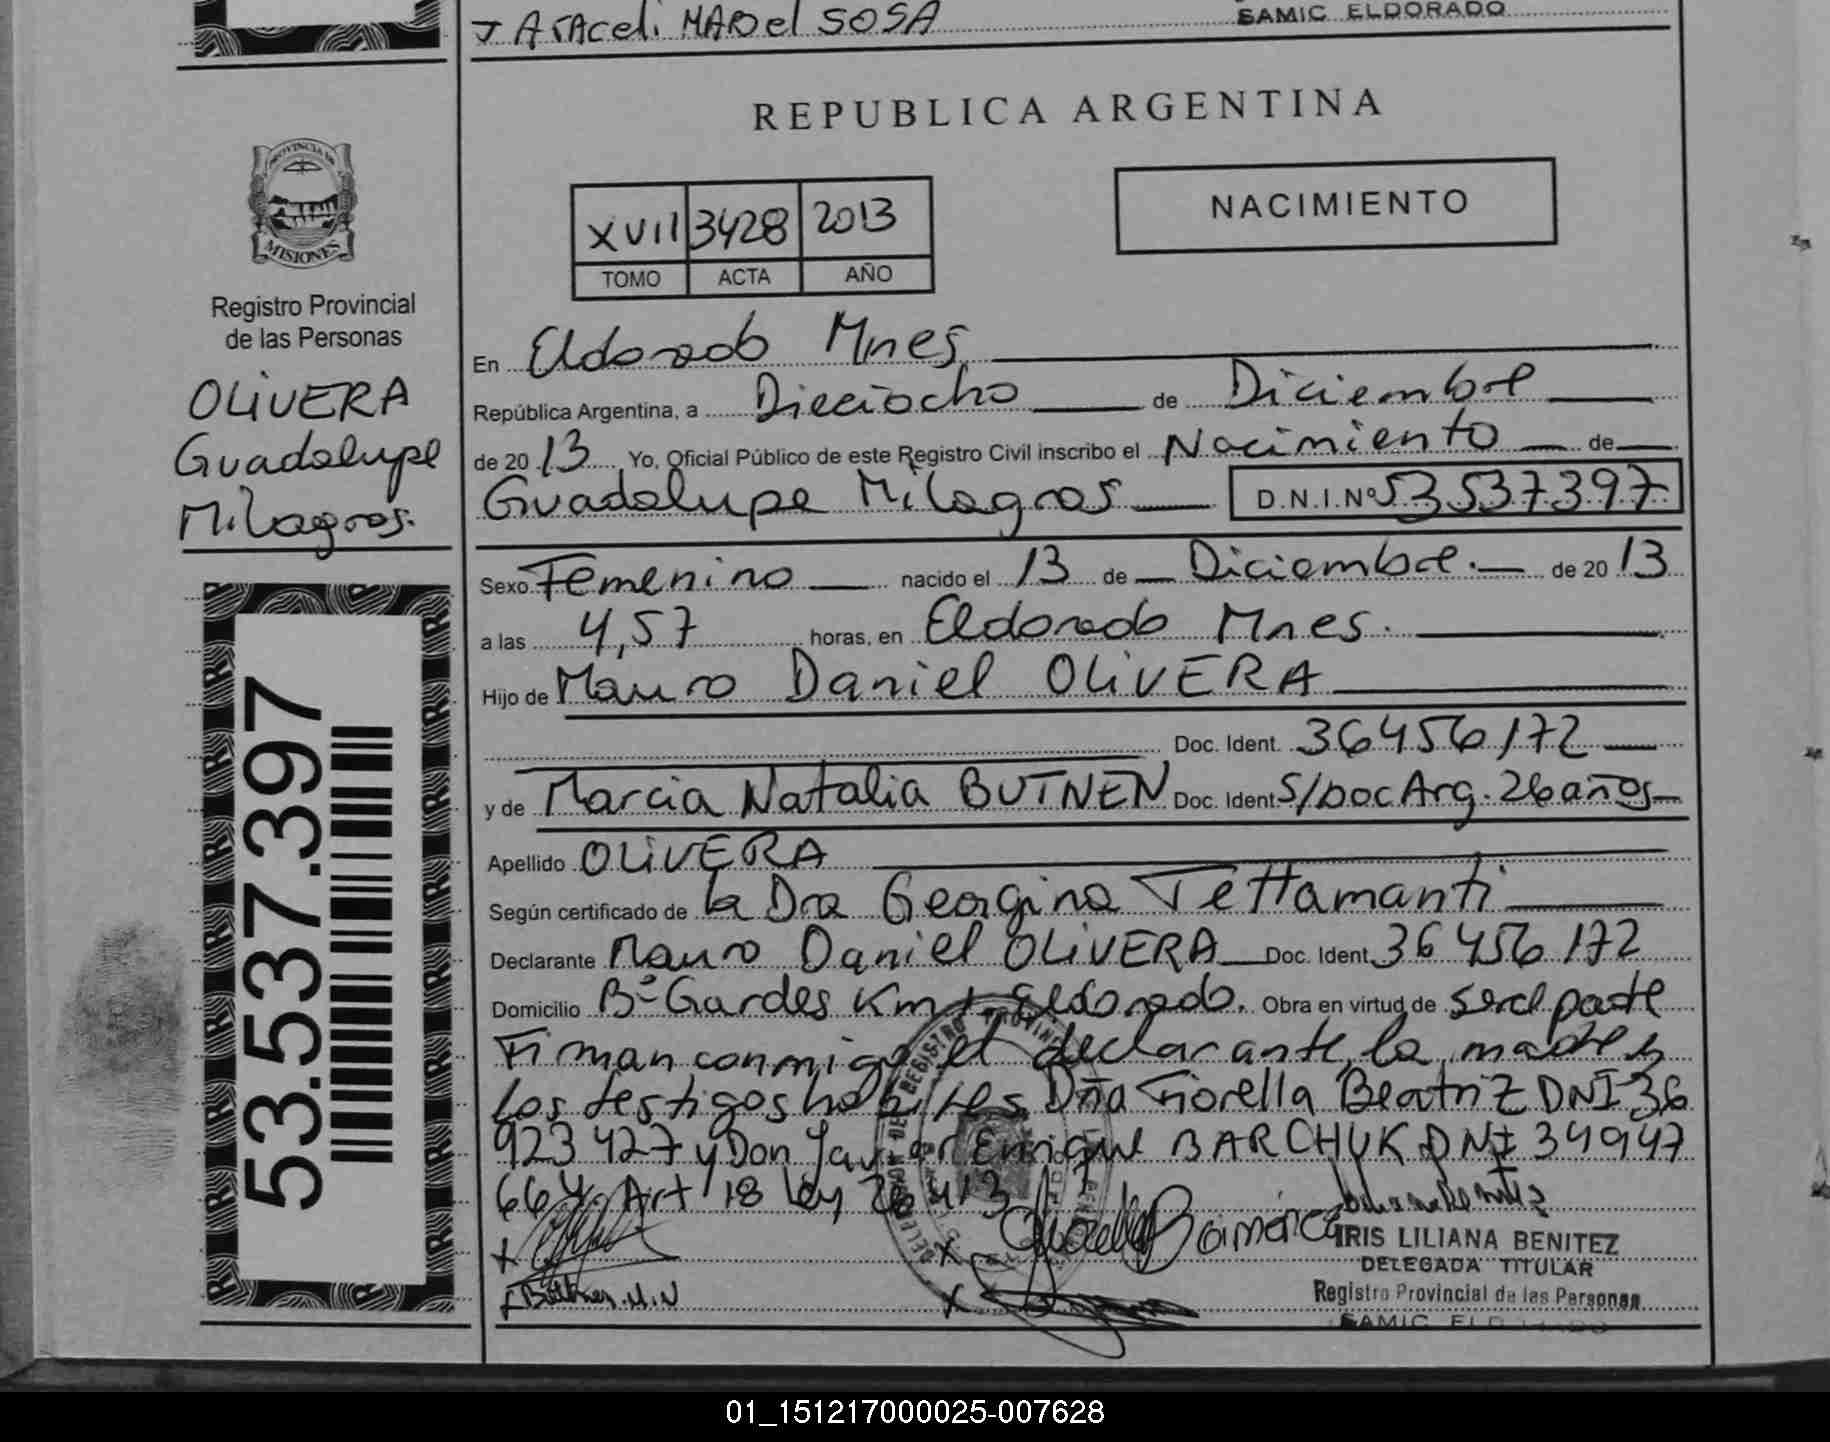 y Araceli MABel SOSA
SAMIC ELDORADO
REPUBLICA ARGENTINA
PROVINCIA DE
MISIONES
XVII 3428 2013
TOMO ACTA AÑO
NACIMIENTO
Registro Provincial
de las Personas
OLiVERA
Guadalupe
Milagros.
53.537.397
En Eldorado Mnes
República Argentina, a Dieciocho de Diciembre
de 20 13 Yo, Oficial Público de este Registro Civil inscribo el Nacimiento de
Guadalupe Milagros D.N.I.Nº 53537397
Sexo Femenino nacido el 13 de Diciembre. de 20 13
a las 4,57 horas, en Eldorado Mnes.
Hijo de Mauro Daniel OLiVERA
Doc. Ident. 36456172
y de Marcia Natalia BUTNEN Doc. Ident S/Doc Arg. 26 años
Apellido OLiVERA
Según certificado de la Dra Georgina Tettamanti
Declarante Mauro Daniel OLiVERA Doc. Ident. 36 456 172
Domicilio Bº Gardes Km 1 Eldorado. Obra en virtud de ser el padre
Firman conmigo el declarante, la madre y
los testigos habiles Dña Fiorella Beatriz DNI 36
923 427 y Don Javier Enrique BARCHUK DNI 34947
664. Art 18 ley 26413
IRIS LILIANA BENITEZ
DELEGADA TITULAR
Registro Provincial de las Personas
SAMIC
x
x
x Büttner M.N
x
01_151217000025-007628